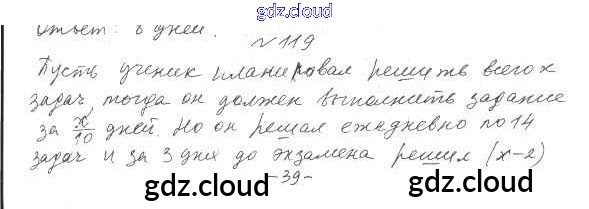 gdz.cloud
ответ: 8 дней.
№119
Пусть ученик планировал решить всего x
задач, тогда он должен выполнить задание
за x/10 дней. Но он решал ежедневно по 14
задач и за 3 дня до экзамена решил (x-2)
-39-
gdz.cloud gdz.cloud